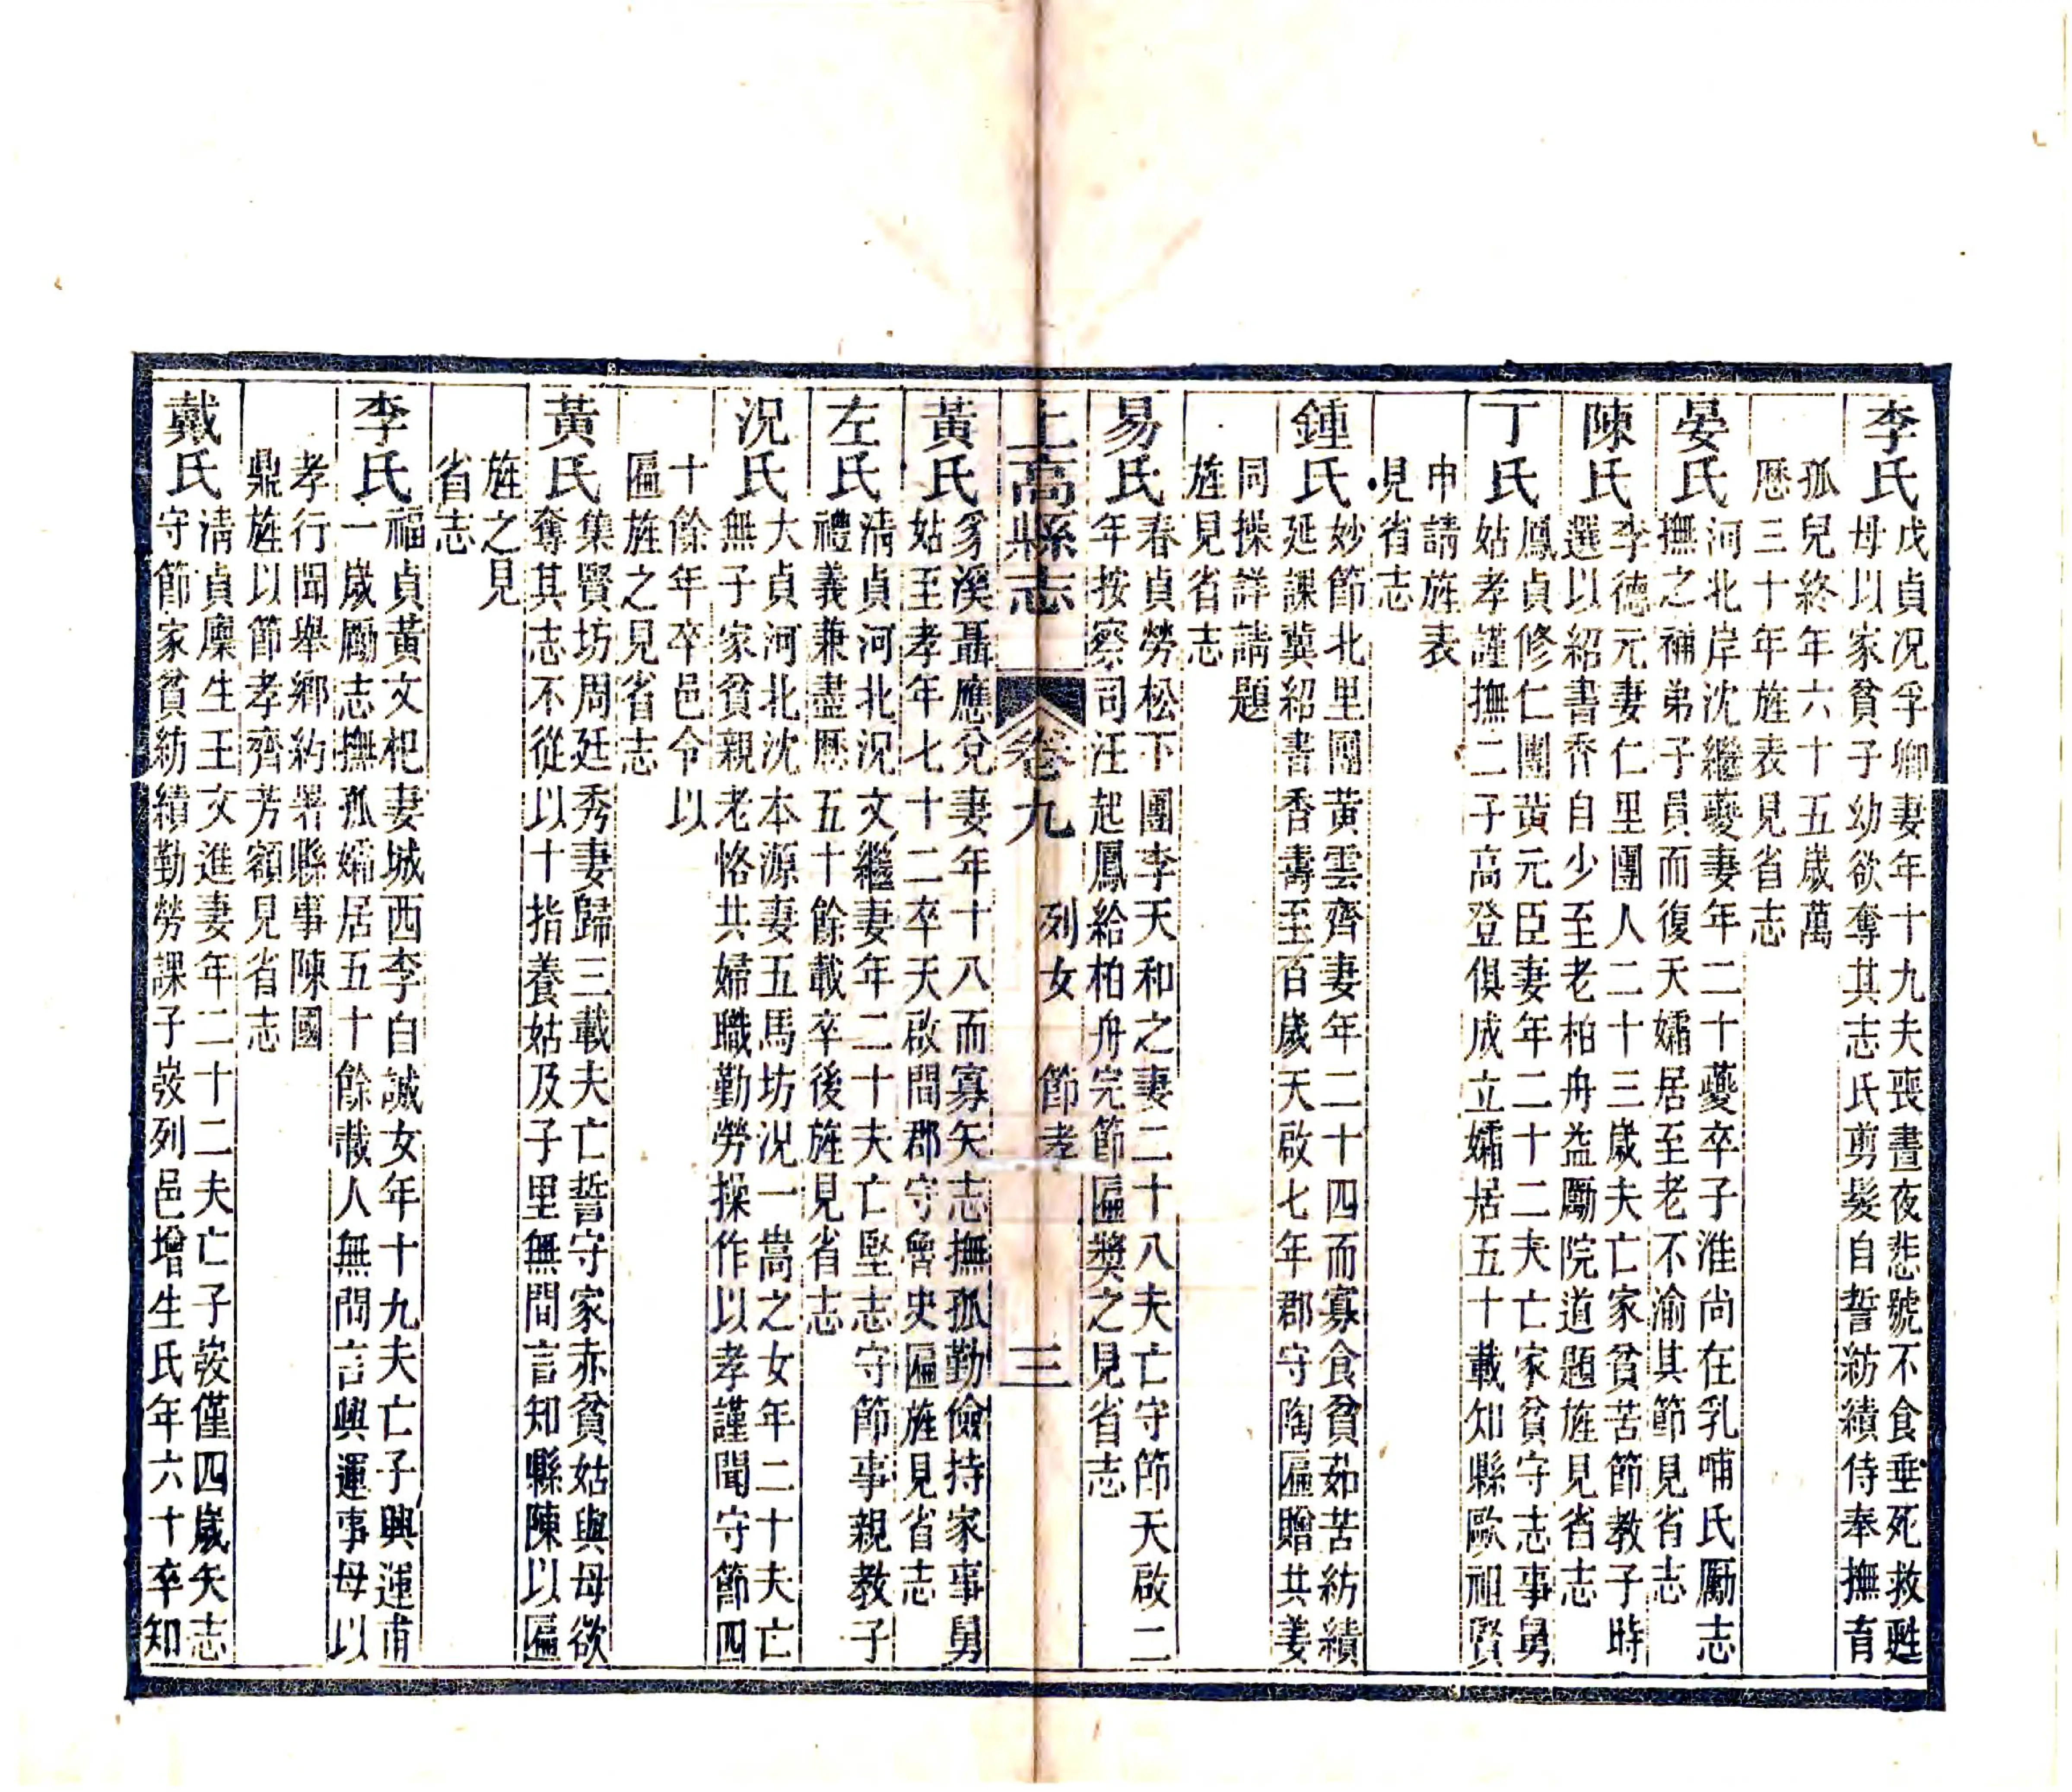 李氏
戊貞况孚卿妻年十九夫喪晝夜悲號不食垂死救甦
母以家貧子幼欲奪其志氏剪髮自誓紡績侍奉撫育
孤兒終年六十五歲萬
厯三十年旌表見省志
晏氏
河北岸沈繼夔妻年二十夔卒子淮尚在乳哺氏勵志
撫之補弟子員而復夭孀居至老不渝其節見省志
陳氏
李德元妻仁里團人二十三歲夫亡家貧苦節教子時
選以紹書香自少至老柏舟益勵院道題旌見省志
丁氏
鳳貞修仁團黃元臣妻年二十二夫亡家貧守志事舅
姑孝謹撫二子高登俱成立孀居五十載知縣歐祖賢
申請旌表
見省志
鍾氏
妙節北里團黃雲齊妻年二十四而寡食貧茹苦紡績
延課冀紹書香壽至百歲天啟七年郡守陶匾贈共姜
同操詳請題
旌見省志
易氏
春貞勞松下團李天和之妻二十八夫亡守節天啟二
年按察司汪起鳳給柏舟完節匾奬之見省志
上高縣志 卷九 列女 節孝 三
黃氏
豸溪聶應兌妻年十八而寡矢志撫孤勤儉持家事舅
姑至孝年七十二卒天啟間郡守曾史匾旌見省志
左氏
淸貞河北況文繼妻年二十夫亡堅志守節事親教子
禮義兼盡厯五十餘載卒後旌見省志
況氏
大貞河北沈本源妻五馬坊況一嵩之女年二十夫亡
無子家貧親老恪共婦職勤勞操作以孝謹聞守節四
十餘年卒邑令以
匾旌之見省志
黃氏
集賢坊周廷秀妻歸三載夫亡誓守家赤貧姑與母欲
奪其志不從以十指養姑及子里無間言知縣陳以匾
旌之見
省志
李氏
福貞黃文杞妻城西李自誠女年十九夫亡子興運甫
一歲勵志撫孤孀居五十餘載人無間言興運事母以
孝行聞舉鄉約署縣事陳國
鼎旌以節孝齊芳額見省志
戴氏
淸貞廩生王文進妻年二十二夫亡子㟽僅四歲矢志
守節家貧紡績勤勞課子㟽列邑增生氏年六十卒知